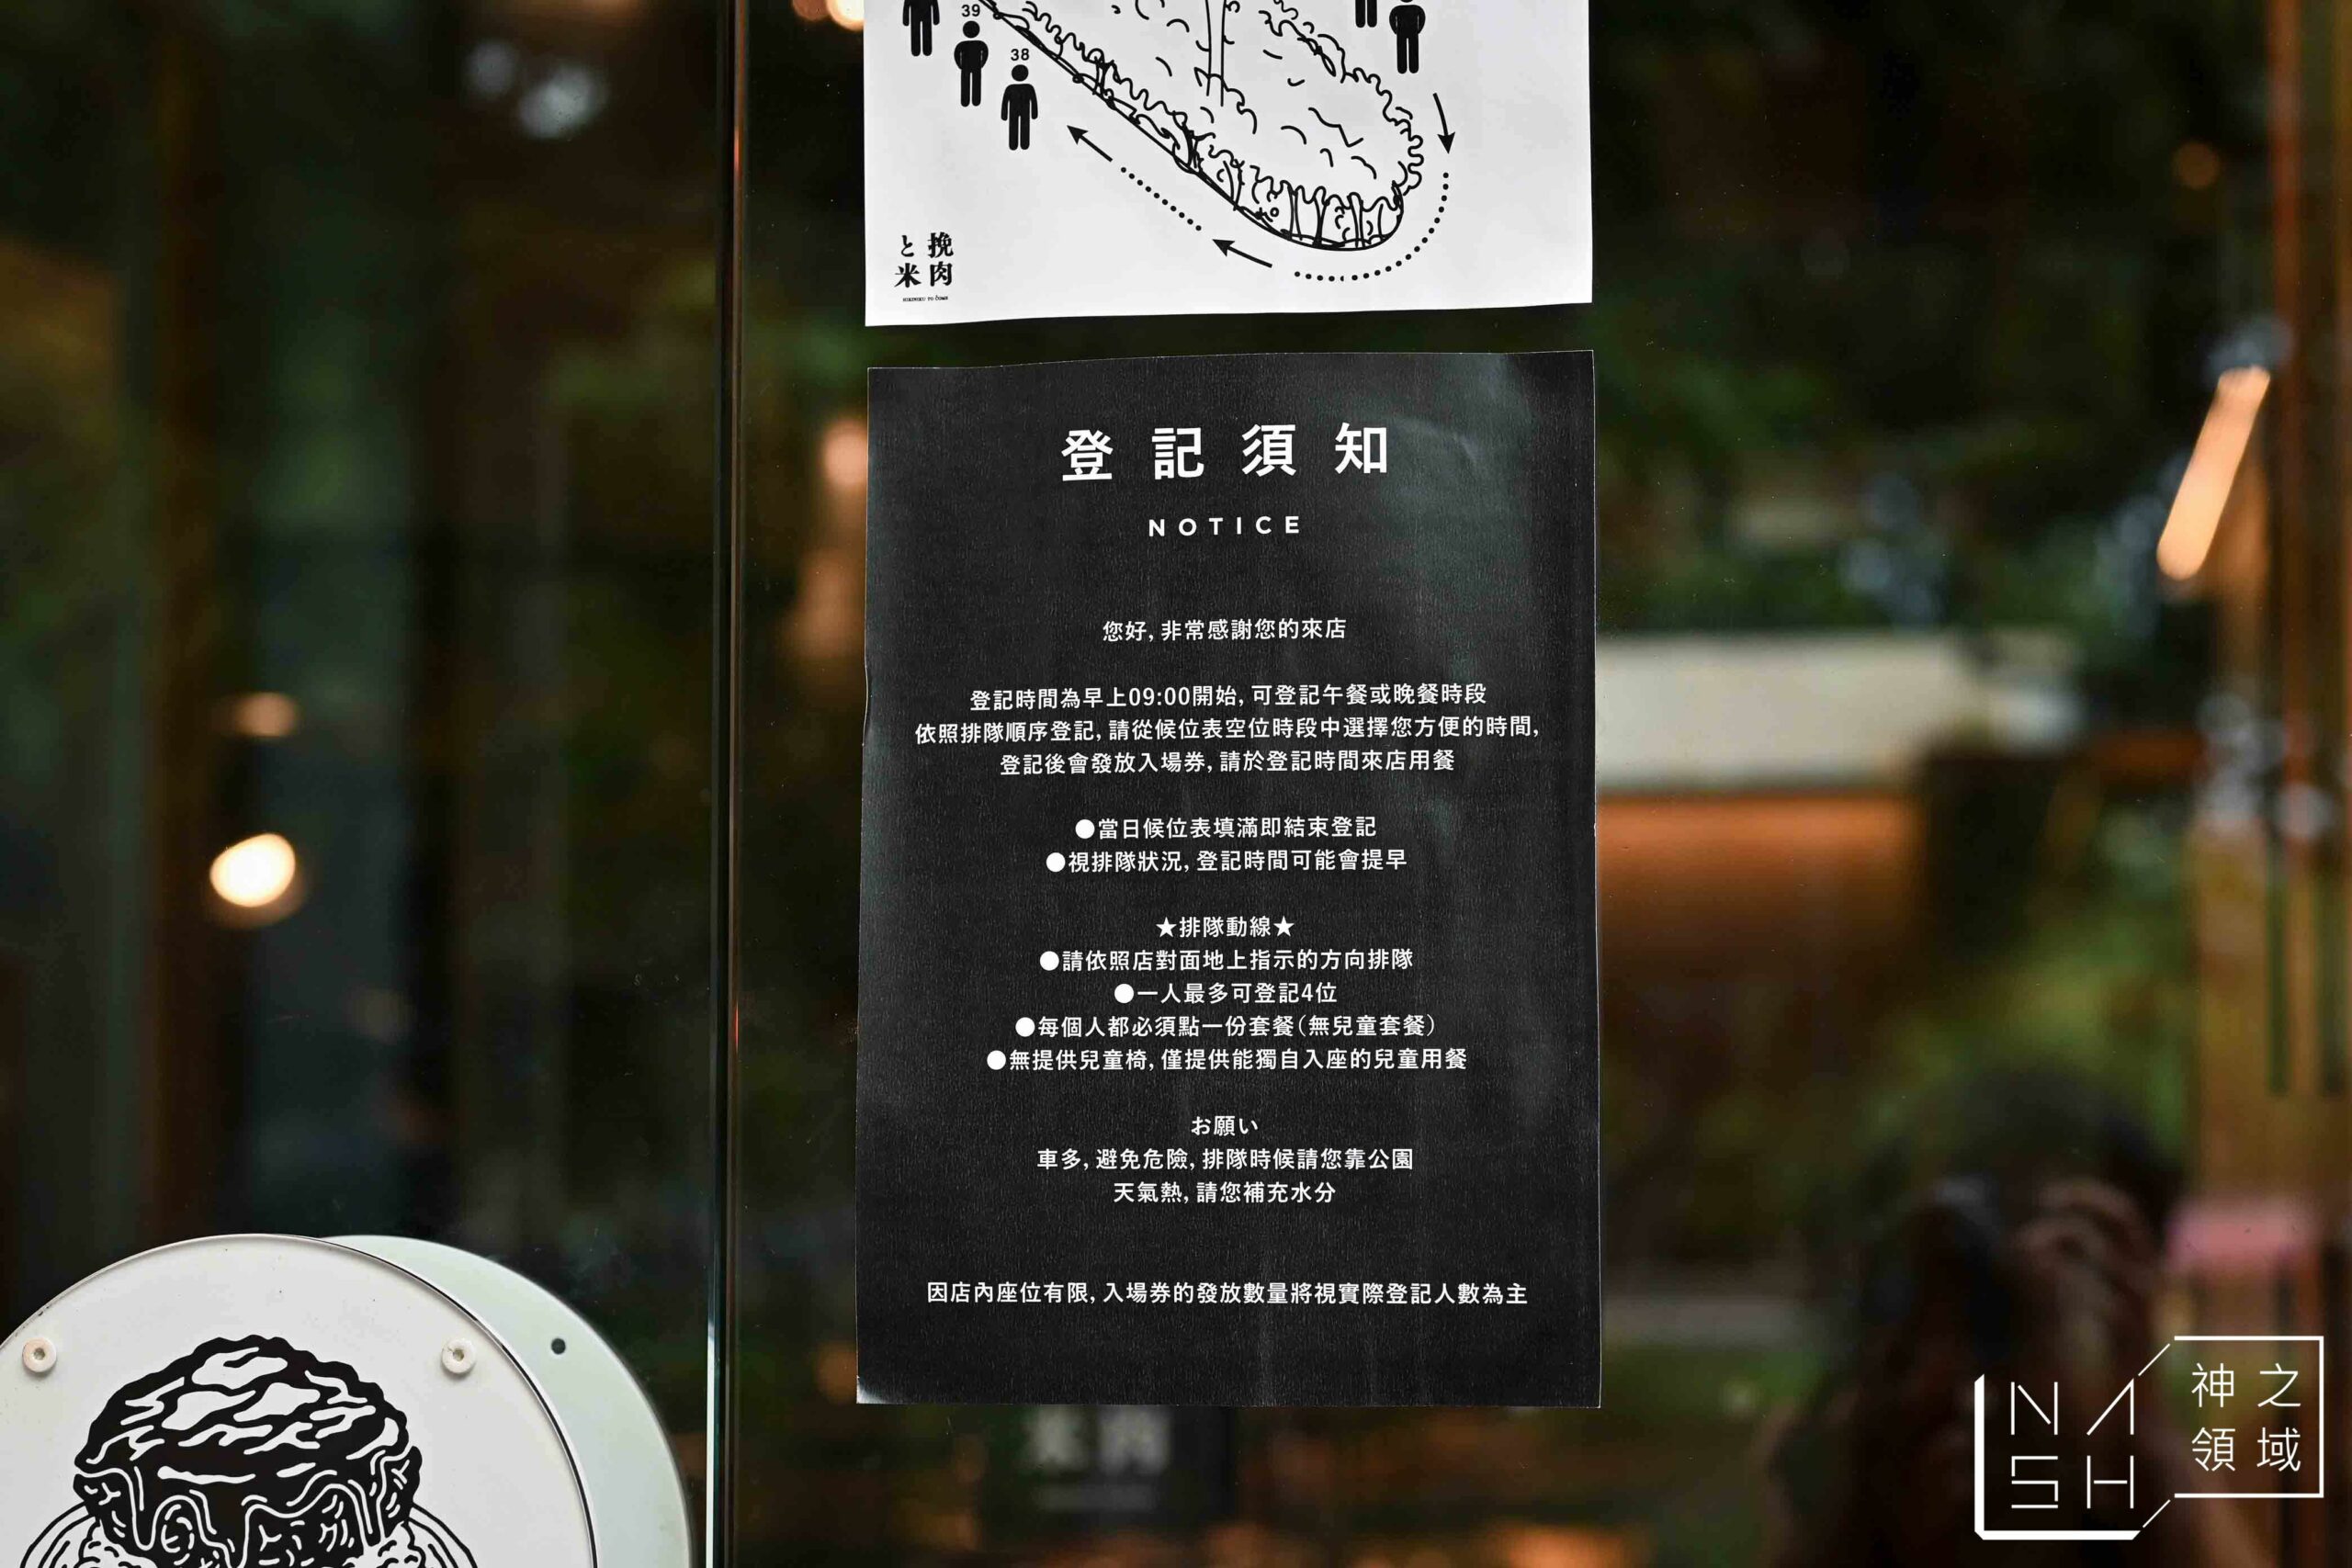 39
38
挽肉
と米
登記須知
NOTICE
您好,非常感謝您的來店
登記時間為早上09:00開始,可登記午餐或晚餐時段
依照排隊順序登記,請從候位表空位時段中選擇您方便的時間,
登記後會發放入場券,請於登記時間來店用餐
●當日候位表填滿即結束登記
●視排隊狀況,登記時間可能會提早
★排隊動線★
●請依照店對面地上指示的方向排隊
●一人最多可登記4位
●每個人都必須點一份套餐(無兒童套餐)
●無提供兒童椅,僅提供能獨自入座的兒童用餐
お願い
車多,避免危險,排隊時候請您靠公園
天氣熱,請您補充水分
因店內座位有限,入場券的發放數量將視實際登記人數為主
NASH
神之
領域